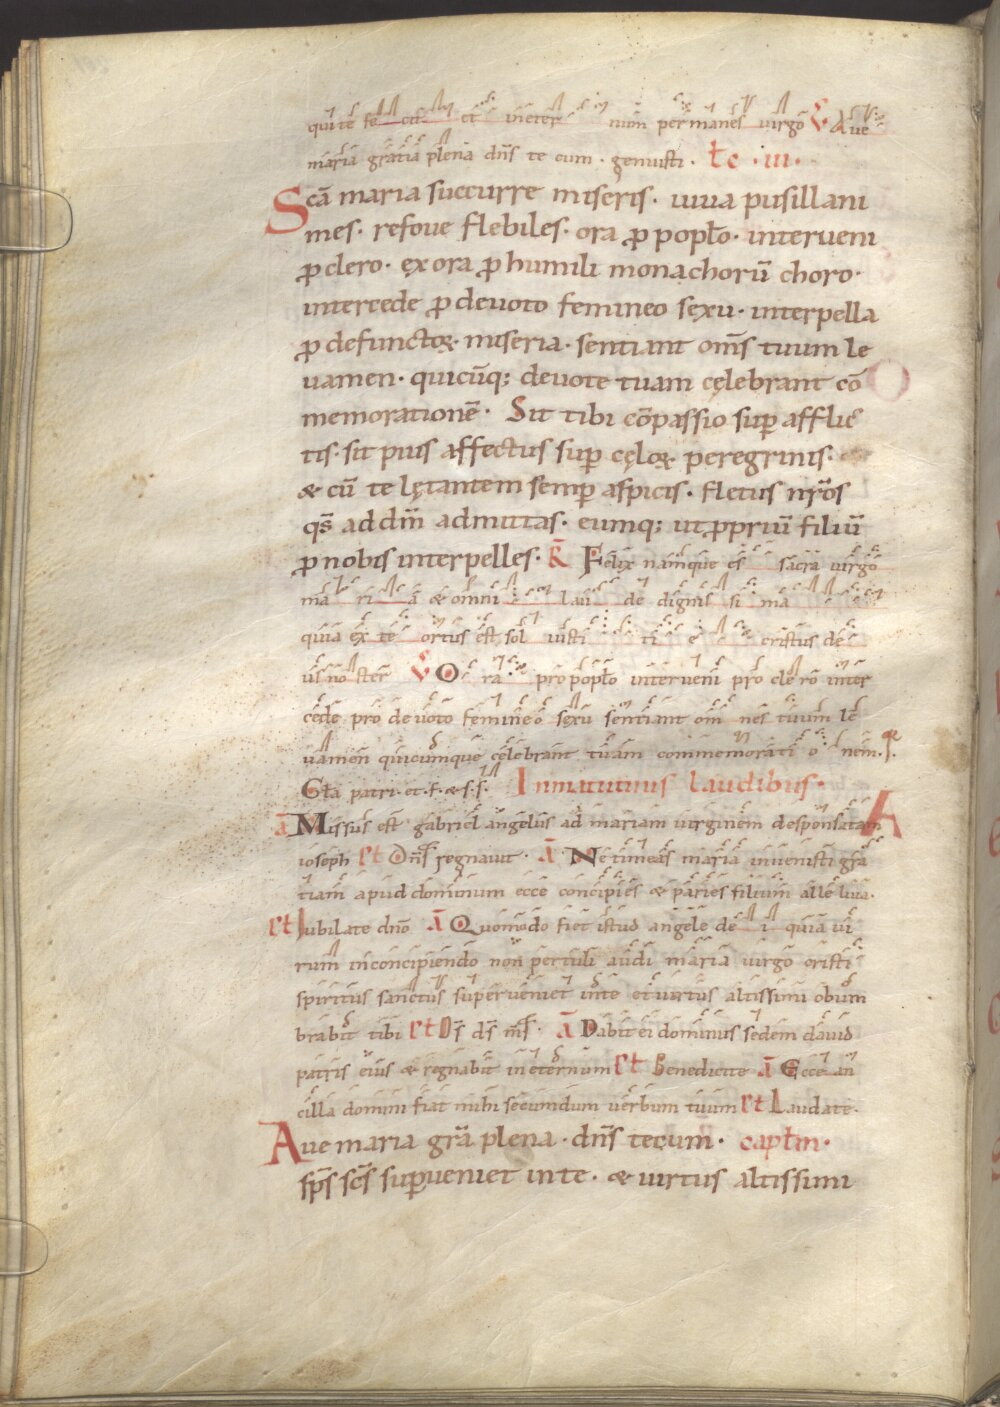 qui te fe cit et in eter num permanes virgo V Ave
maria gratia plena dns te cum . genuisti . Lc . iii .
Scā maria succurre miseris . iuua pusillani
mes . refoue flebiles . ora ꝓ popło . interueni
ꝓ clero . exora ꝓ humili monachorū choro .
intercede ꝓ deuoto femineo sexu . interpella
ꝓ defunctoꝝ miseria . sentiant om̄s tuum le
uamen . quicūq; deuote tuam cęlebrant cō
memorationē . Sit tibi cōpassio suꝑ afflic
tis . sit pius affectus suꝑ cęloꝝ peregrinis .
& cū te lętantem semꝑ aspicis . fletus nr̄os
qs̄ ad dm̄ admittas . eumq; ut ꝓpriū filiū
ꝓ nobis interpelles . R̄ Felix namque es sacra virgo
ma ri a & omni lau de dignis si ma
quia ex te ortus est sol iusti ti e cristus de
us noster V O ra pro popło interueni pro clero inter
cede pro deuoto femineo sexu sentiant om nes tuum le
uamen quicumque celebrant tuam commemorati o nem .
Gła patri . et . f . & s . s . In matutinis laudibus .
ā Missus est gabriel angelus ad mariam virginem desponsatam
ioseph Et Dn̄s regnauit . Ā Ne timeas maria inuenisti gra
tiam apud dominum ecce concipies & paries filium alleluia .
Et Iubilate dn̄o Ā Quomodo fiet istud angele de i quia ui
rum in concipiendo non pertuli audi maria virgo cristi
spiritus sanctus superueniet in te et uirtus altissimi obum
brabit tibi Et Ds̄ ds̄ ms̄ . Ā Dabit ei dominus sedem dauid
patris eius & regnabit in eternum Et Benedicite Ā Ecce an
cilla domini fiat mihi secundum uerbum tuum Et Laudate .
Aue maria grā plena . dn̄s tecum . captłm .
sps̄ sc̄s suꝑueniet in te . & uirtus altissimi